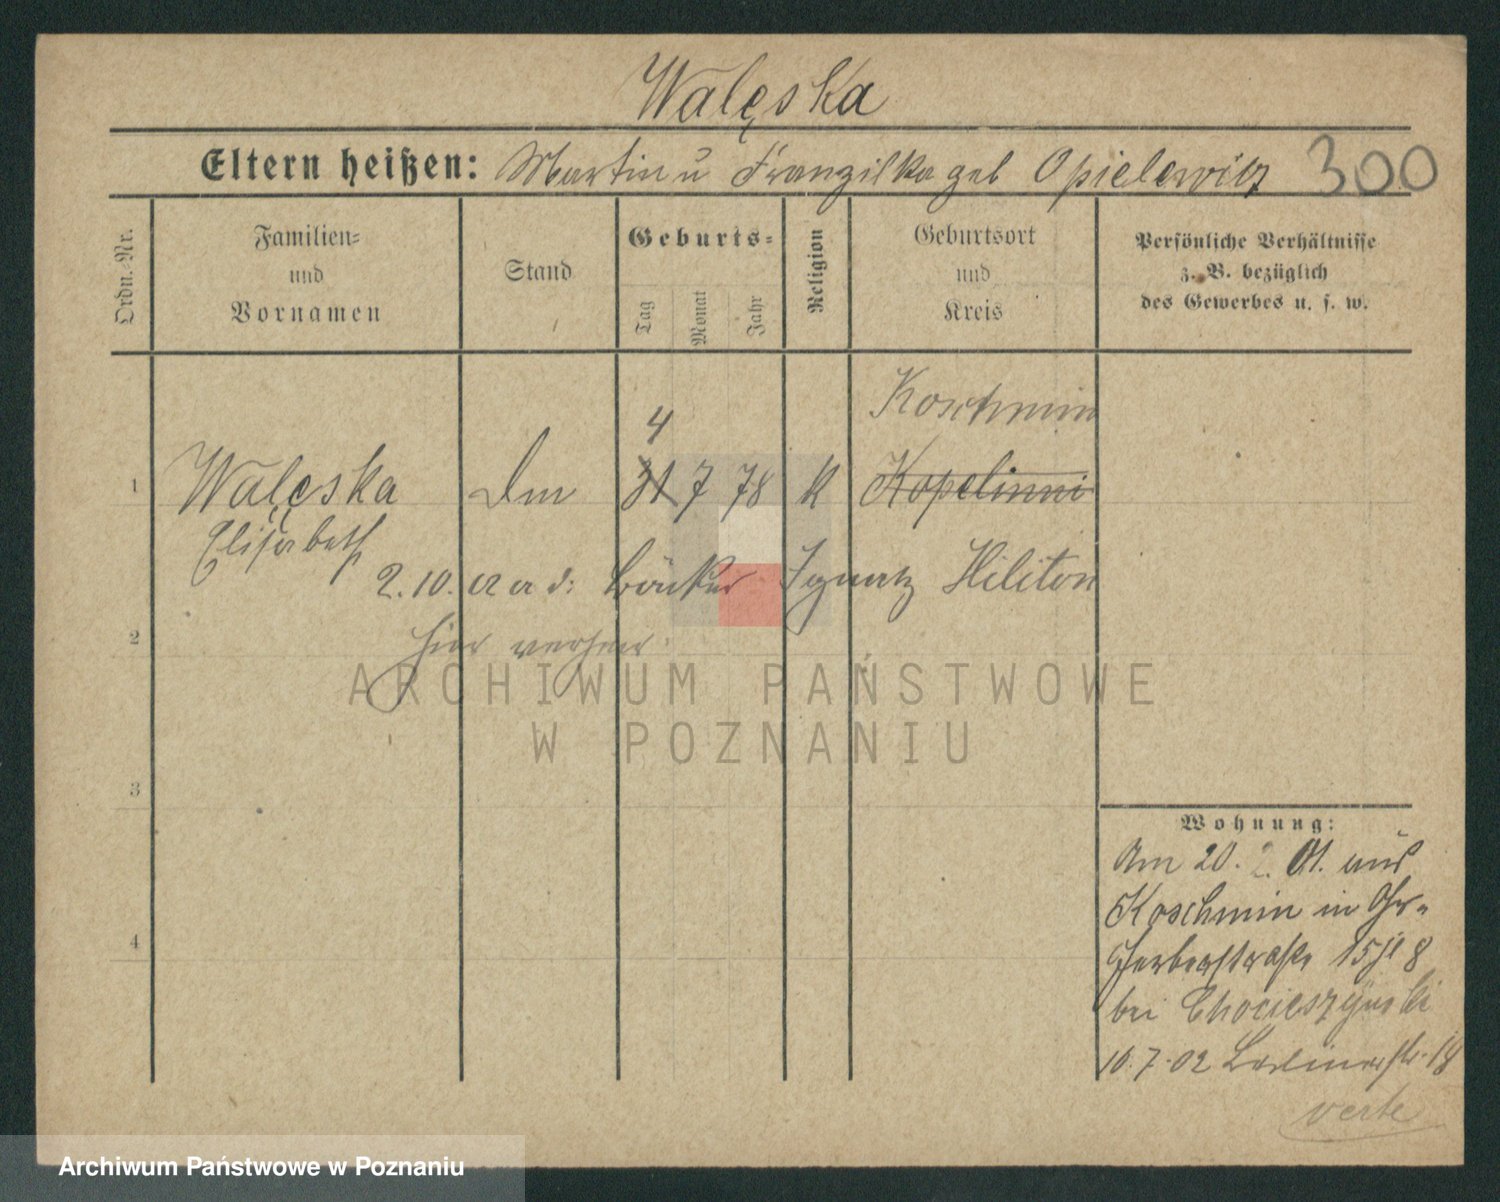 Walęska
Eltern heißen: Martin u Franziska geb Opielewicz 300
Ordn. Nr.
Familien-
und
Vornamen
Stand
Geburts-
Tag
Monat
Jahr
Religion
Geburtsort
und
Kreis
Persönliche Verhältnisse
z. B. bezüglich
des Gewerbes u. s. w.
Koschmin
4
1 Walęska 31 7 78 K
Elisabeth
2. 10. Bäcker Ignatz Hiliton
2 hier verheir.
3
Wohnung:
Am 20. 2. 01. aus
Koschmin in Gr-
4
Gerberstraße 15
bei
10. 7. 02 Berlinerstr. 18
verte
ARCHIWUM PAŃSTWOWE
W POZNANIU
Archiwum Państwowe w Poznaniu